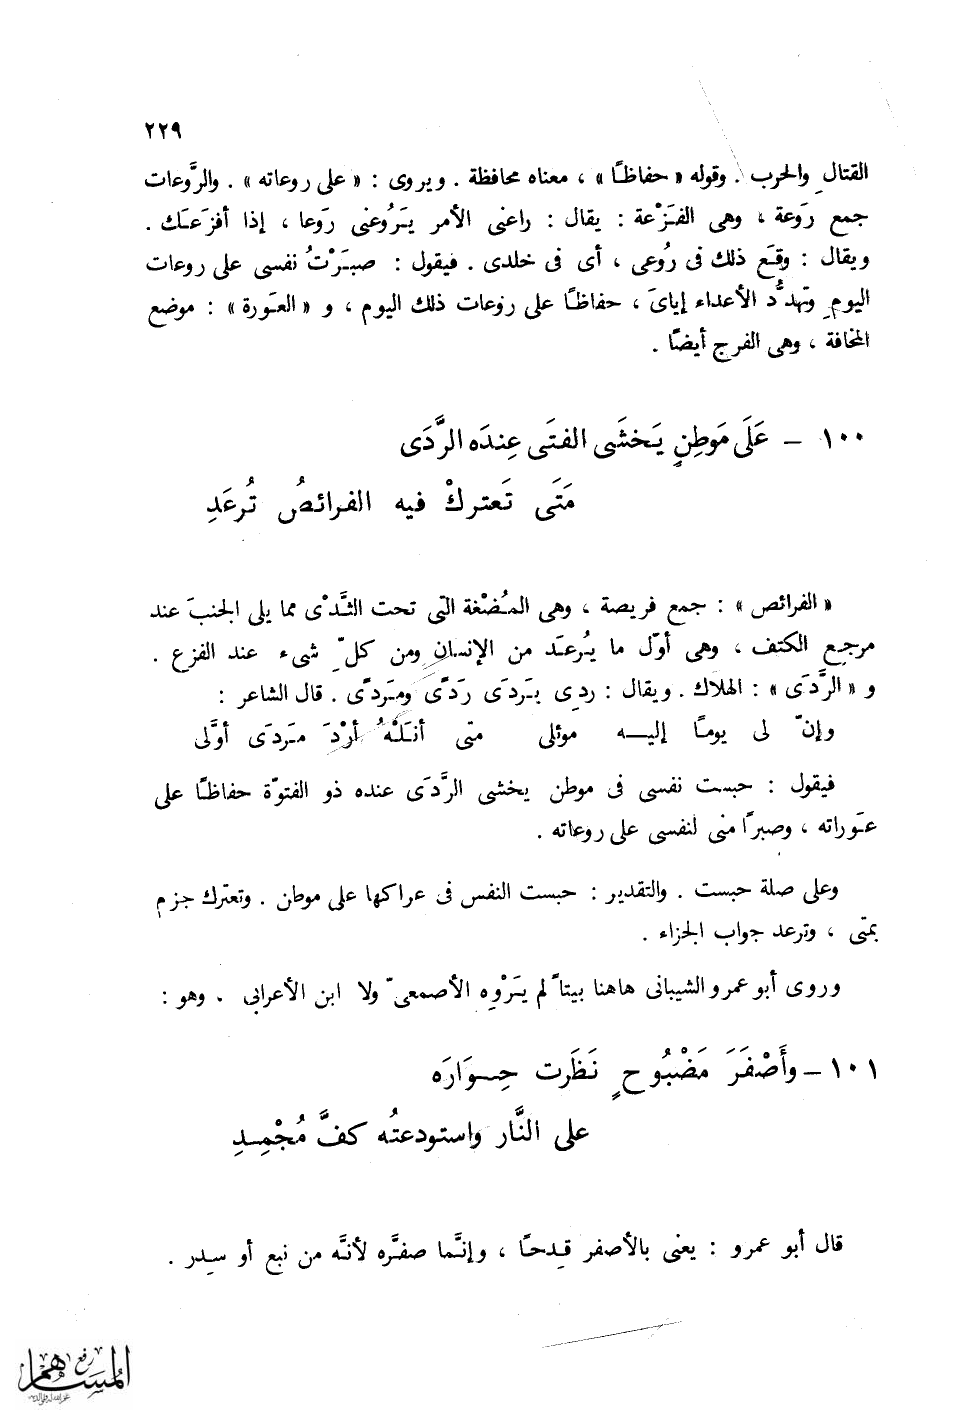 ٢٢٩
القتال والحرب . وقوله « حفاظًا » ، معناه محافظة . ويروى : « على روعاته » . والرَّوعات
جمع رَوعة ، وهى الفَزْعة : يقال : راعنى الأمر يَرُوعنى رَوعا ، إذا أفزَعَك .
ويقال : وقَع ذلك فى رُوعى ، أى فى خلدى . فيقول : صبَرْتُ نفسى على روعات
اليومِ وتهدُّد الأعداء إياىَ ، حفاظًا على رَوْعات ذلك اليوم ، و « العَورة » : موضع
المخافة ، وهى الفرج أيضًا .
١٠٠ – عَلَى مَوطِنٍ يَخشَى الفتَى عِندَه الرَّدَى
مَتَى تَعتركْ فيه الفرائصُ تُرعَدِ
« الفرائص » : جمع فريصة ، وهى المُضْغة التى تحت الثَّدْى مما يلى الجنبَ عند
مرجِع الكتف ، وهى أوّل ما يُرعَد من الإنسانِ ومن كلِّ شىء عند الفزع .
و « الرَّدَى » : الهلاك . ويقال : ردِى يَردَى رَدًى ومَردًى . قال الشاعر :
وإنّ لى يومًا إليـــه موئلى متى أنَلْهُ أرْدَ مَردَى أوَّلى
فيقول : حبست نفسى فى موطن يخشى الرَّدَى عنده ذو الفتوّة حفاظًا على
عَوراته ، وصبرًا منى لنفسى على روعاته .
وعلى صلة حبست . والتقدير : حبست النفس فى عراكها على موطن . وتعترك جزم
بمتى ، وترعد جواب الجزاء .
وروى أبو عمرو الشيبانى هاهنا بيتاً لم يَرْوِه الأصمعىّ ولا ابن الأعرابى . وهو :
١٠١ – وأَصْفَرَ مَضْبُوحٍ نَظَرت حِـوَارَه
على النَّار واستودعتُه كفَّ مُجْمِدِ
قال أبو عمرو : يعنى بالأصفر قِدحًا ، وإنَّما صفَّره لأنَّه من نبع أو سِدر .